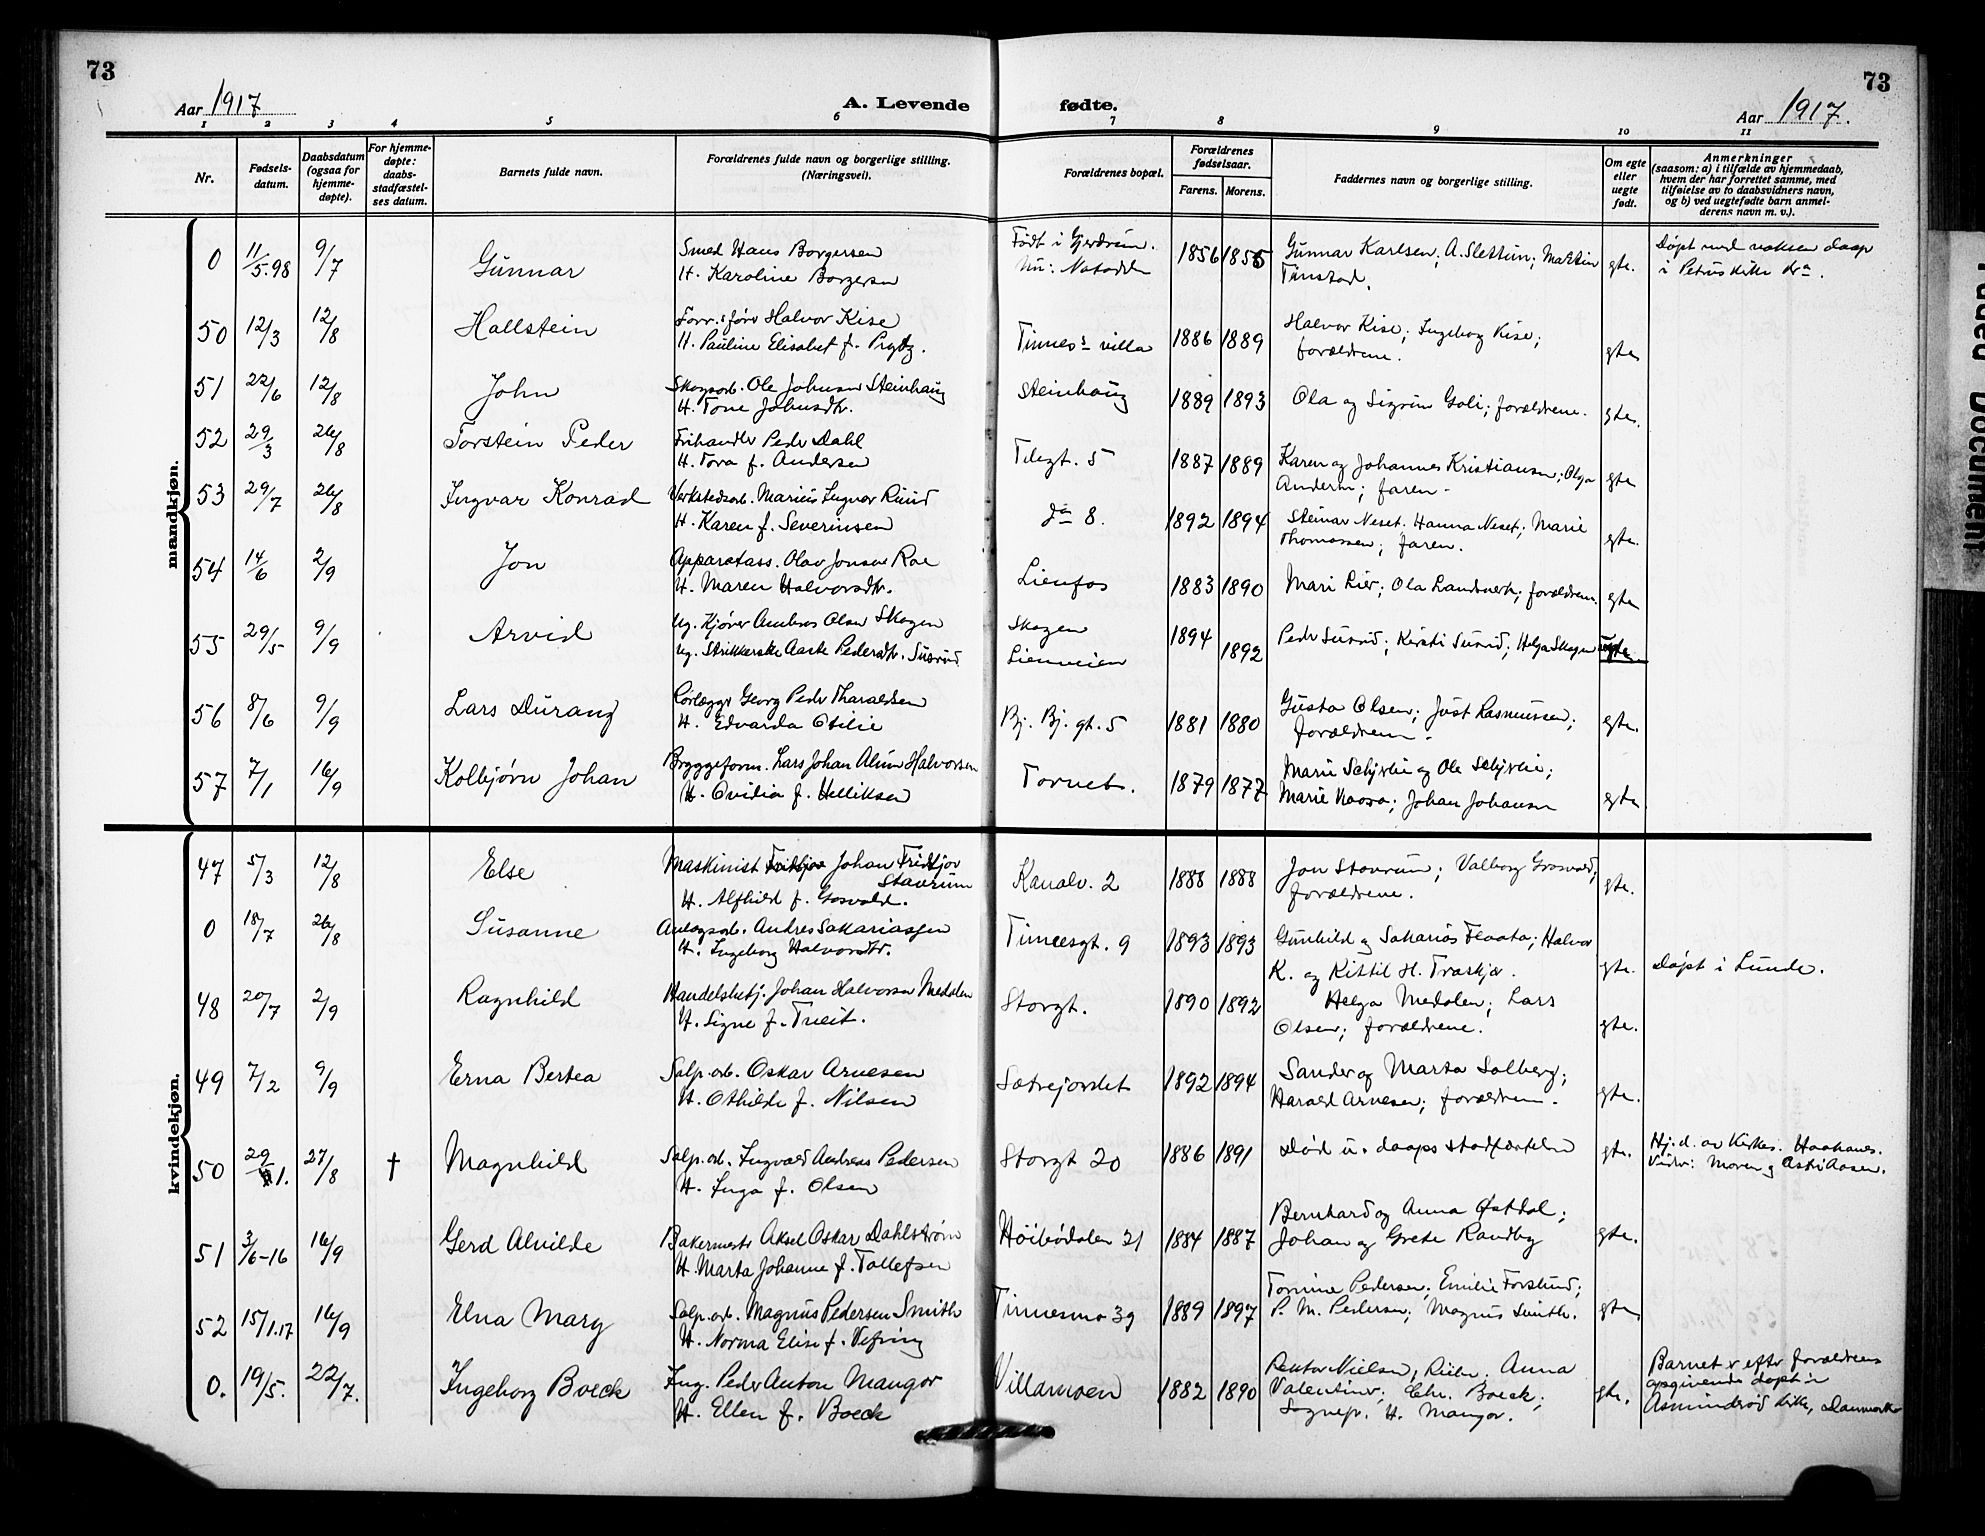 73
73
Aar 1917
A. Levende fødte.
Aar 1917.
1 2 3 4 5 6 7 8 9 10 11
Nr.
Fødsels-
datum.
Daabsdatum
(ogsaa for
hjemme-
døpte).
For hjemme-
døpte:
daabs-
stadfæstel-
ses datum.
Barnets fulde navn.
Forældrenes fulde navn og borgerlige stilling.
(Næringsvei).
Forældrenes bopæl.
Forældrenes
fødselsaar.
Farens. Morens.
Faddernes navn og borgerlige stilling.
Om egte
eller
uegte
født.
Anmerkninger
(saasom: a) i tilfælde av hjemmedaab,
hvem der har forrettet samme, med
tilføielse av to daabsvidners navn,
og b) ved uegtefødte barn anmel-
derens navn m. v.).
mandkjøn.
0 11/5.98 9/7 Gunnar Smed Hans Borgersen Født i Gjerdrum. 1856 1855 Gunnar Karlsen; A. Slettun; Martin gte. Døpt med voksen daap
H. Karoline Borgersen Nu: Notodden Tinstad. i Petruskirke Kra.
50 12/3 12/8 Hallstein Forr.sfører Halvor Kise Tinnes villa 1886 1889 Halvor Kise; Ingeborg Kise; gte
H. Pauline Elisabet f. Prytz. forældrene.
51 22/6 12/8 John Skogsarb. Ole Johnsen Steinhaug Steinhaug 1889 1893 Ola og Sigrun Goli; forældrene. gte.
H. Tone Johnsdtr.
52 29/3 26/8 Torstein Peder Frihandler Peder Dahl Tlegt. 5 1887 1889 Karen og Johannes Kristiansen; Olga gte
H. Tora f. Andersen Andersen; faren.
53 29/7 26/8 Ingvar Konrad Verkstedsarb. Marius Ingvar Ruud do 8. 1892 1894 Steinar Neset. Hanna Neset; Marie gte.
H. Karen f. Severinsen Thomassen; faren.
54 14/6 2/9 Jon Apparatass. Olav Jonsen Roe Lienfos 1883 1890 Mari Lier; Ola Landsverk; forældrene. gte
H. Maren Halvorsdtr.
55 29/5 9/9 Arvid Ug. Kjører Ambros Olsen Skogen Skogen 1894 Peder Susrud; Kirsti Susrud; Helga Skogen uegte
Ug. Strikkerske Aaste Pedersdtr. Susrud Lienveien 1892
56 8/6 9/9 Lars Durang Rørlægger Georg Peder Tharaldsen Bj. Bj. gt. 5 1881 1880 Gusta Olsen; Just Rasmussen; gte.
H. Edvarda Otilie forældrene.
57 7/1 16/9 Kolbjørn Johan Bryggeform. Lars Johan Alum Halvorsen Tornet. 1879 1877 Marie Schyrlie og Ole Schyrlie; gte
H. Ovidia f. Helliksen Marie Moosa; Johan Johansen
kvindekjøn.
47 5/3 12/8 Else Maskinist Johan Fridtjov Kanalv. 2 1888 1888 Jon Stavrum; Valborg Grosvold; gte.
Stavrum
H. Alfhild f. Gosvold. forældrene.
0 18/7 26/8 Susanne Anlagsarb. Andres Sakariassen Tinnesgt. 9 1893 1893 Gunhild og Sakarias Flaata; Halvor
H. Ingeborg Halvorsdtr. K. og Kittil H. Traskja. gte. Døpt i Lunde.
48 20/7 2/9 Ragnhild Handelsbetj. Johan Halvorsen Medalen Storgt. 1890 1892 Helga Medalen; Lars
H. Signe f. Tveit. Olsen; forældrene. gte.
49 7/2 9/9 Erna Bertea Salp.arb. Oskar Arnesen Sætrejordet 1892 1894 Sander og Marta Solberg; gte.
H. Othilde f. Nilsen Harald Arnesen; forældrene.
50 29/1. 27/8 † Magnhild Salp.arb. Ingvald Andreas Pedersen Storgt 20 1886 1891 Død u. daaps stadfæstelse gte. Hj.d. av Kirkes. Haahanes.
H. Inga f. Olsen Vidner: Moren og Aasen.
51 3/6-16 16/9 Gerd Alvilde Bakermester Aksel Oskar Dahlstrøm Høibødalen 21 1884 1887 Bernhard og Anna Østdal; gte.
H. Marta Johanne f. Tollefsen Johan og Grete Randby
52 15/1.17 16/9 Elna Mary Salp.arb. Magnus Pedersen Smith Tinnesmo 39 1889 1897 Tomine Pedersen; Emilie Forslund; gte
H. Norma Elise f. Vefring P. M. Pedersen; Magnus Smith.
0. 19/5. 22/7. Ingeborg Boeck Ing. Peder Anton Mangor Villamoen 1882 1890 Rektor Nielsen, Anna gte. Barnet er efter forældrenes
H. Ellen f. Boeck Valentiner; Chr. Boeck; opgivende døpt i
Sognepr. H. Mangor. Asminderød kirke, Danmark
Faded Document